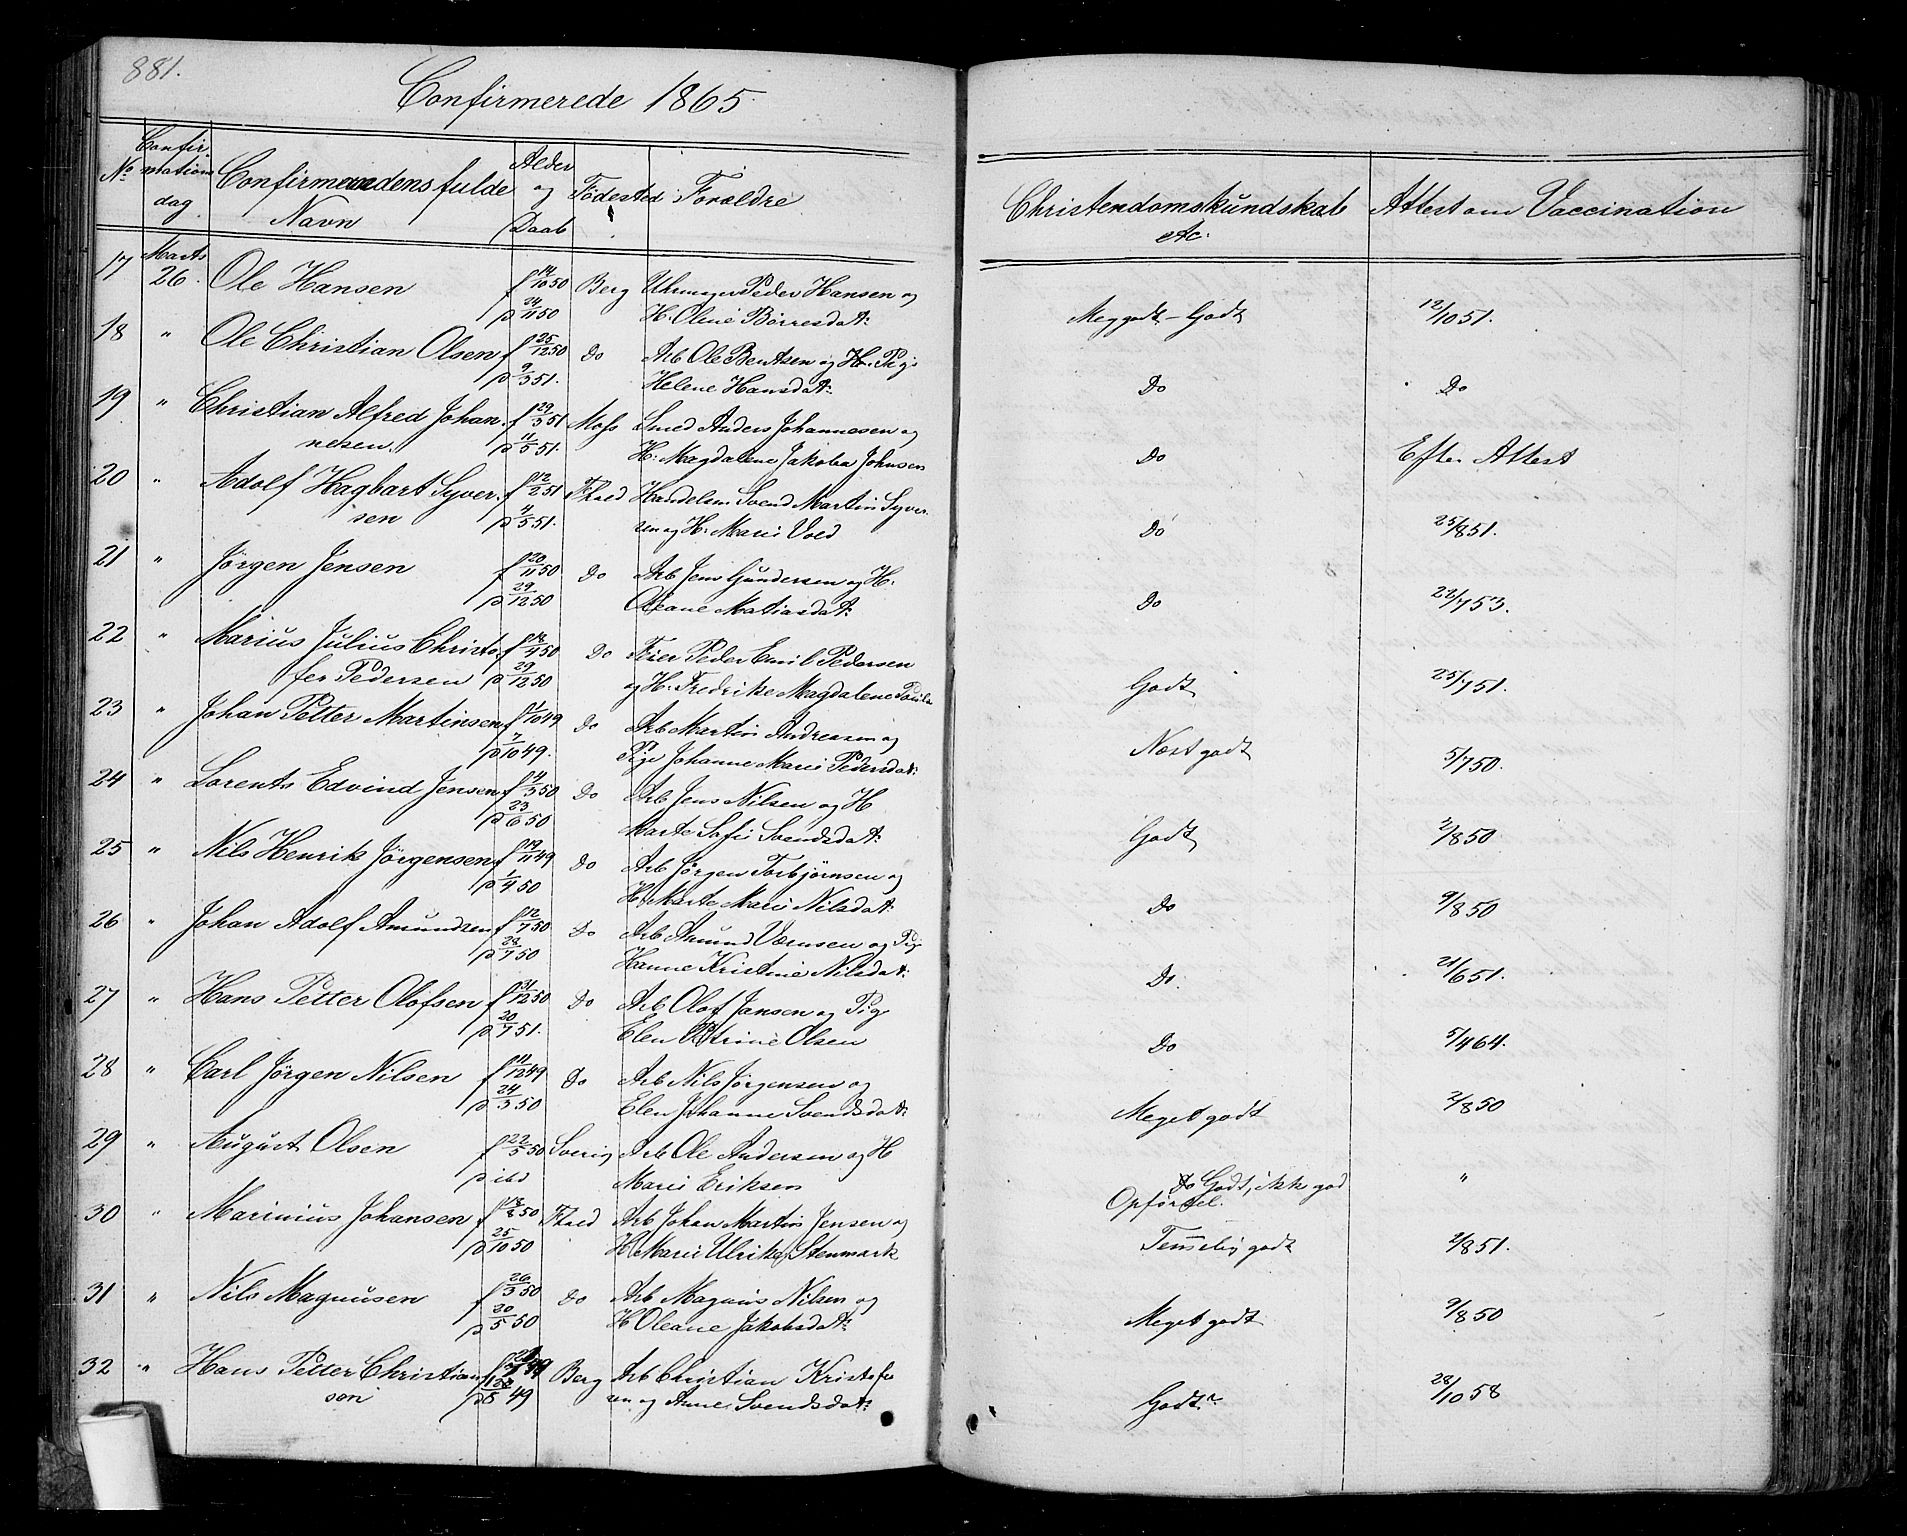 881.
Confirmerede 1865.
No Confirmations dag Confirmandens fulde Navn Alder og Daab Födested Forældre Christendomskundskab etc. Attest om Vaccination
17 Marts 26. Ole Hansen f 14/10 50 Berg Uhrmager Peder Hansen og
p 24/11 50 H. Olene Börresdat: Meg godt - Godt 12/10 51.
18 " Ole Christian Olsen f 25/12 50 Do Arb Ole Bentsen og Pige
p 9/3 51. Helene Hansdat: Do Do
19 " Christian Alfred Johan- f 29/3 51 Moss Smed Anders Johannesen og
nesen. p 11/5 51. H: Magdalene Jakoba Johnsen Do Efter Attest
20 " Adolf Hagbart Syver- f 12/2 51 Fhald Handelsm. Svend Martin Syver-
sen p 4/5 51. sen og H: Marie Voed Do 25/8 51.
21 " Jörgen Jensen f 20/11 50 Do Arb Jens Gundersen og H.
p 29/12 50 Oleane Matiasdat: Do 22/7 53.
22 " Marius Julius Christo- f 18/4 50 Do Feier Peder Emil Pedersen
fer Pedersen p 29/12 50 og H. Fredrike Magdalene Godt 25/7 51.
23 " Johan Petter Martinsen f 1/10 49 Do Arb Martin Andreasen og
p 7/10 49. Pige Johanne Marie Pedersdat: Næst godt 5/7 50.
24 " Lorents Edvind Jensen f 14/3 50 Do Arb Jens Nilsen og H
p 23/6 50 Marte Sofie Svendsdat: Godt 2/8 50
25 " Nils Henrik Jörgensen f 19/11 49 Do Arb Jörgen Torbjörnsen og
p 1/4 50 H. Marte Marie Nilsdat: Do 9/8 50
26 " Johan Adolf Amundsen f 12/7 50 Do Arb Amund Værnsen og Pig
p 28/7 50 Hanne Kristine Nilsdat: Do. 21/6 51.
27 " Hans Petter Olofsen f 31/12 50 Do Arb Olof Jansen og Pig
p 20/7 51. Elen Petrine Olsen Do 5/4 64.
28 " Carl Jörgen Nilsen f 11/12 49 Do Arb Nils Jörgensen og
p 24/3 50 Elen Johanne Svendsdat: Meget godt 2/8 50
29 " August Olsen f 22/5 50 Sverig Arb Ole Andersen og H
p ibd Marie Eriksen Do Godt, ikke god Opförsel. "
30 " Marinius Johansen f 18/8 50 Fhald Arb Johan Martin Jensen og
p 25/10 50 H. Marie Ulrike Stenmark Temmelig godt 2/8 51.
31 " Nils Magnusen f 26/3 50 Do Arb Magnus Nilsen og
p 20/5 50 H Oleane Jakobsdat: Meget godt 9/8 50
32 " Hans Petter Christian- f 49 Berg Arb Christian Kristofer-
sen p 49 sen og Anne Svendsdat: Godt. 28/10 58